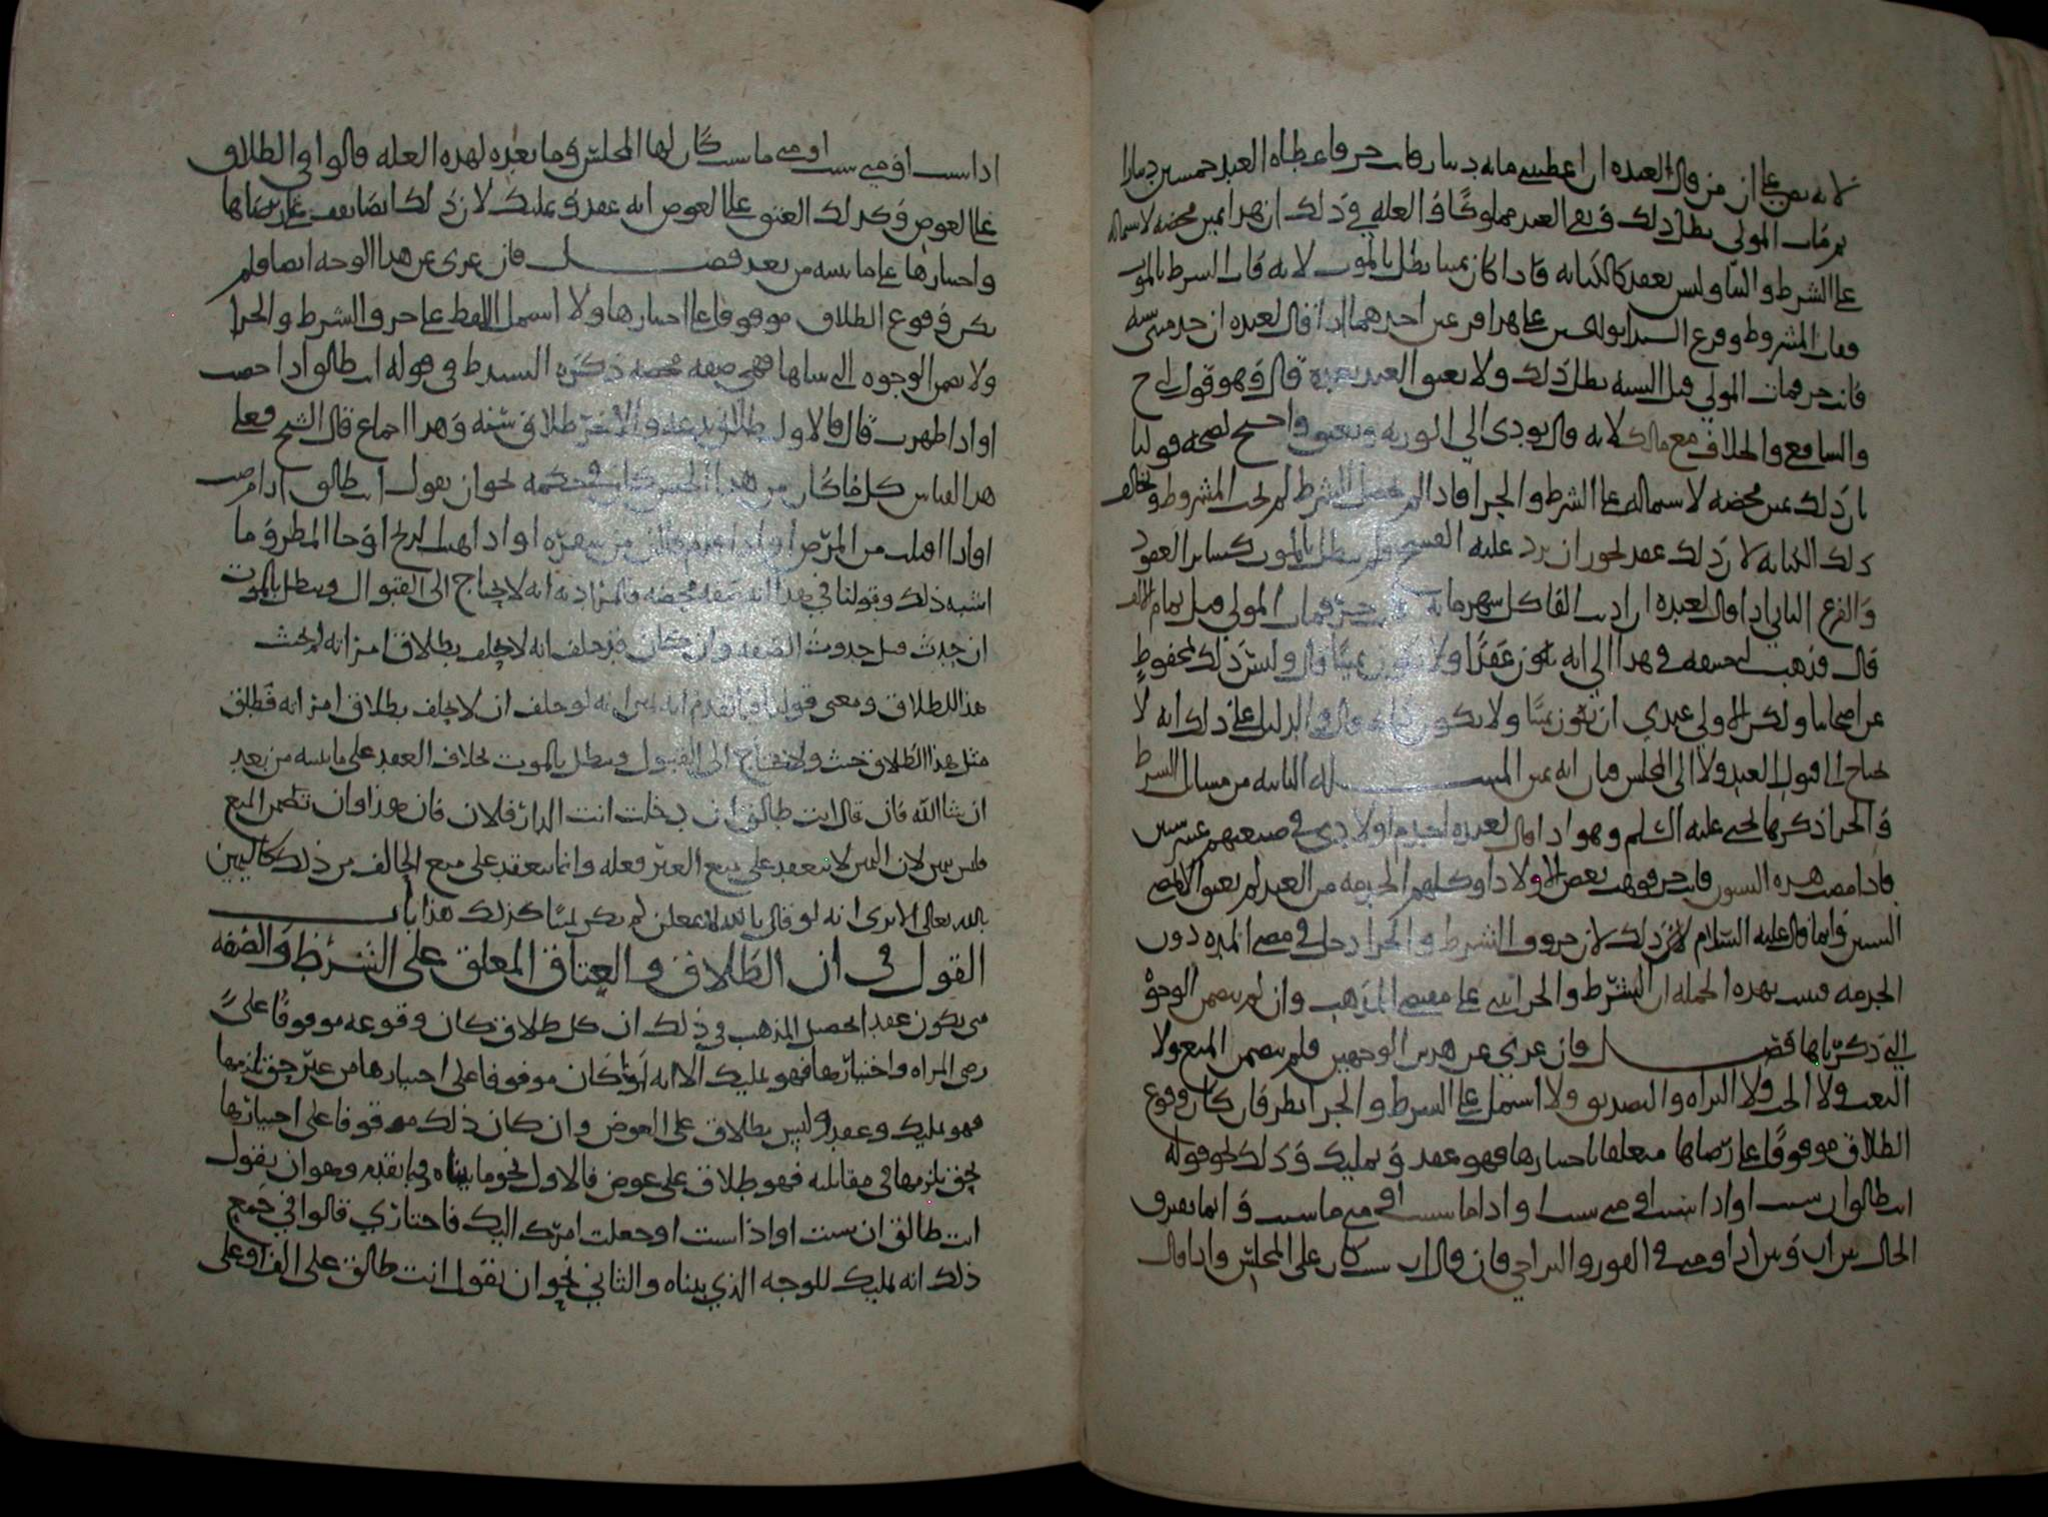 لانه نص على ان من قال لعبده ان اعطيتني مائة دينار فانت حر فاعطاه العبد خمسين دينارا
ثم مات المولى بطل ذلك وبقي العبد مملوكا والعلة في ذلك ان هذا يمين محضة لاشتماله
على الشرط والبناء وليس بعقد كالكتابة فاذا كان يمينا بطل بالموت لانه فات الشرط بالموت
ففات المشروط وفرع السيد ابو على هذا فرعين احدهما اذا قال لعبده ان خدمتني سنة
فانت حر فمات المولى قبل السنة بطل ذلك ولا يعتق العبد بعده قال وهو قول ح
والشافعي والخلاف مع مالك لانه قال يودي الى الورثة ويعتق واحتج لصحة قولنا
بان ذلك يمين محضة لاشتماله على الشرط والجزا فاذا لم يحصل الشرط لم يجب المشروط ويخالف
ذلك الكتابة لان ذلك عقد يجوز ان يرد عليه الفسخ فلم يبطل بالموت كسائر العقود
والفرع الثاني اذا قال لعبده ان اديت الفا كل شهر مائة فانت حر فمات المولى قبل تمام الالف
قال فذهب ابو حنيفة في هذا الى انه يكون عقدا ولا يكون يمينا قال وليس ذلك بمحفوظ
عن اصحابنا ولكن الاولى عندي ان يكون يمينا ولا يكون قال والدليل على ذلك انه لا
يحتاج الى قبول العبد ولا الى المجلس فبان انه يمين المسألة الثانية من مسائل الشرط
والجزا ذكرها يحيى عليه السلم وهو اذا قال لعبده اخدم اولادي في ضيعتهم عشر سنين
فاذا مضت هذه السنون فانت حر فوهب بعض الاولاد او كلهم الخدمة من العبد لم يعتق الا بمضي
السنين وانما قال عليه السلام لان ذلك لان حروف الشرط والجزا دخل في مضي المدة دون
الخدمة فثبت بهذه الجملة ان الشرط والجزا على مقتضى المذهب وان لم يتضمن الوجوه
التي ذكرناها فصل فان عري عن هذين الوجهين فلم يتضمن المنع ولا
البعث ولا الحث ولا البراة والتصديق ولا اشتمل على الشرط والجزا نظر فان كان وقوع
الطلاق موقوفا على رضاها متعلقا باختيارها فهو عقد وتمليك وذلك نحو قوله
انت طالق ان شئت او اذا شئت او متى شئت او اذا ما شئت او متى ما شئت وانما يفترق
الحال بين ان وبين اذا ومتى في الفور والتراخي فان قال ان شئت كان على المجلس واذا قال
اذا شئت او متى شئت او متى ما شئت كان لها المجلس وما بعده لهذه العلة قالوا والطلاق
على العوض وكذلك العتق على العوض انه عقد وتمليك لان ذلك ايضا يقف على رضاها
واختيارها على ما نبينه من بعد فصل فان عري عن هذا الوجه ايضا فلم
يكن وقوع الطلاق موقوفا على اختيارها ولا اشتمل اللفظ على حروف الشرط والجزا
ولا تضمن الوجوه التي بيناها فهي صفة محضة ذكره السيد ط في قوله انت طالق اذا حضت
او اذا طهرت قال فالاول طلاق بدعة والاخر طلاق سنة وهذا اجماع قال الشيخ فعلى
هذا القياس كل ما كان من هذا الجنس كان في حكمه نحو ان يقول انت طالق اذا مرضت
او اذا افقت من المرض او اذا قدم فلان من سفره او اذا هبت الريح او جا المطر وما
اشبه ذلك وقولنا في هذا انه صفة محضة فالمراد به انه لا يحتاج الى القبول ويبطل بالموت
ان حدث قبل حدوث الصفة وان كان قد حلف انه لا يحلف بطلاق امراته لم يحنث
هذا الطلاق ومعنى قولنا فيما تقدم انه يمين انه لو حلف ان لا يحلف بطلاق امراته فطلق
مثل هذا الطلاق حنث ولا يحتاج الى القبول ويبطل بالموت بخلاف العقد على ما نبينه من بعد
ان شا الله فان قال انت طالق ان دخلت انت الدار فلان فان هذا وان تضمن المنع
فليس بيمين لان اليمين لا تنعقد على منع الغير فعله وانما تنعقد على منع الحالف من ذلك كاليمين
بالله تعالى الا ترى انه لو قال بالله لا تفعلن لم يكن يمينا كذلك هذا باب
القول في ان الطلاق والعتاق المعلق على الشرط والصفة
متى يكون عقدا تحصيل المذهب في ذلك ان كل طلاق كان وقوعه موقوفا على
رضى المراه واختيارها فهو تمليك الا انه ان كان موقوفا على اختيارها من غير حق يلزمها
فهو تمليك وعقد وليس بطلاق على العوض وان كان ذلك موقوفا على اختيارها
بحق يلزمها في مقابلته فهو طلاق على عوض فالاول نحو ما بيناه فيما تقدم وهو ان يقول
انت طالق ان شئت او اذا شئت او جعلت امرك اليك فاختاري قالوا في جميع
ذلك انه تمليك للوجه الذي بيناه والثاني نحو ان يقول انت طالق على الف او على